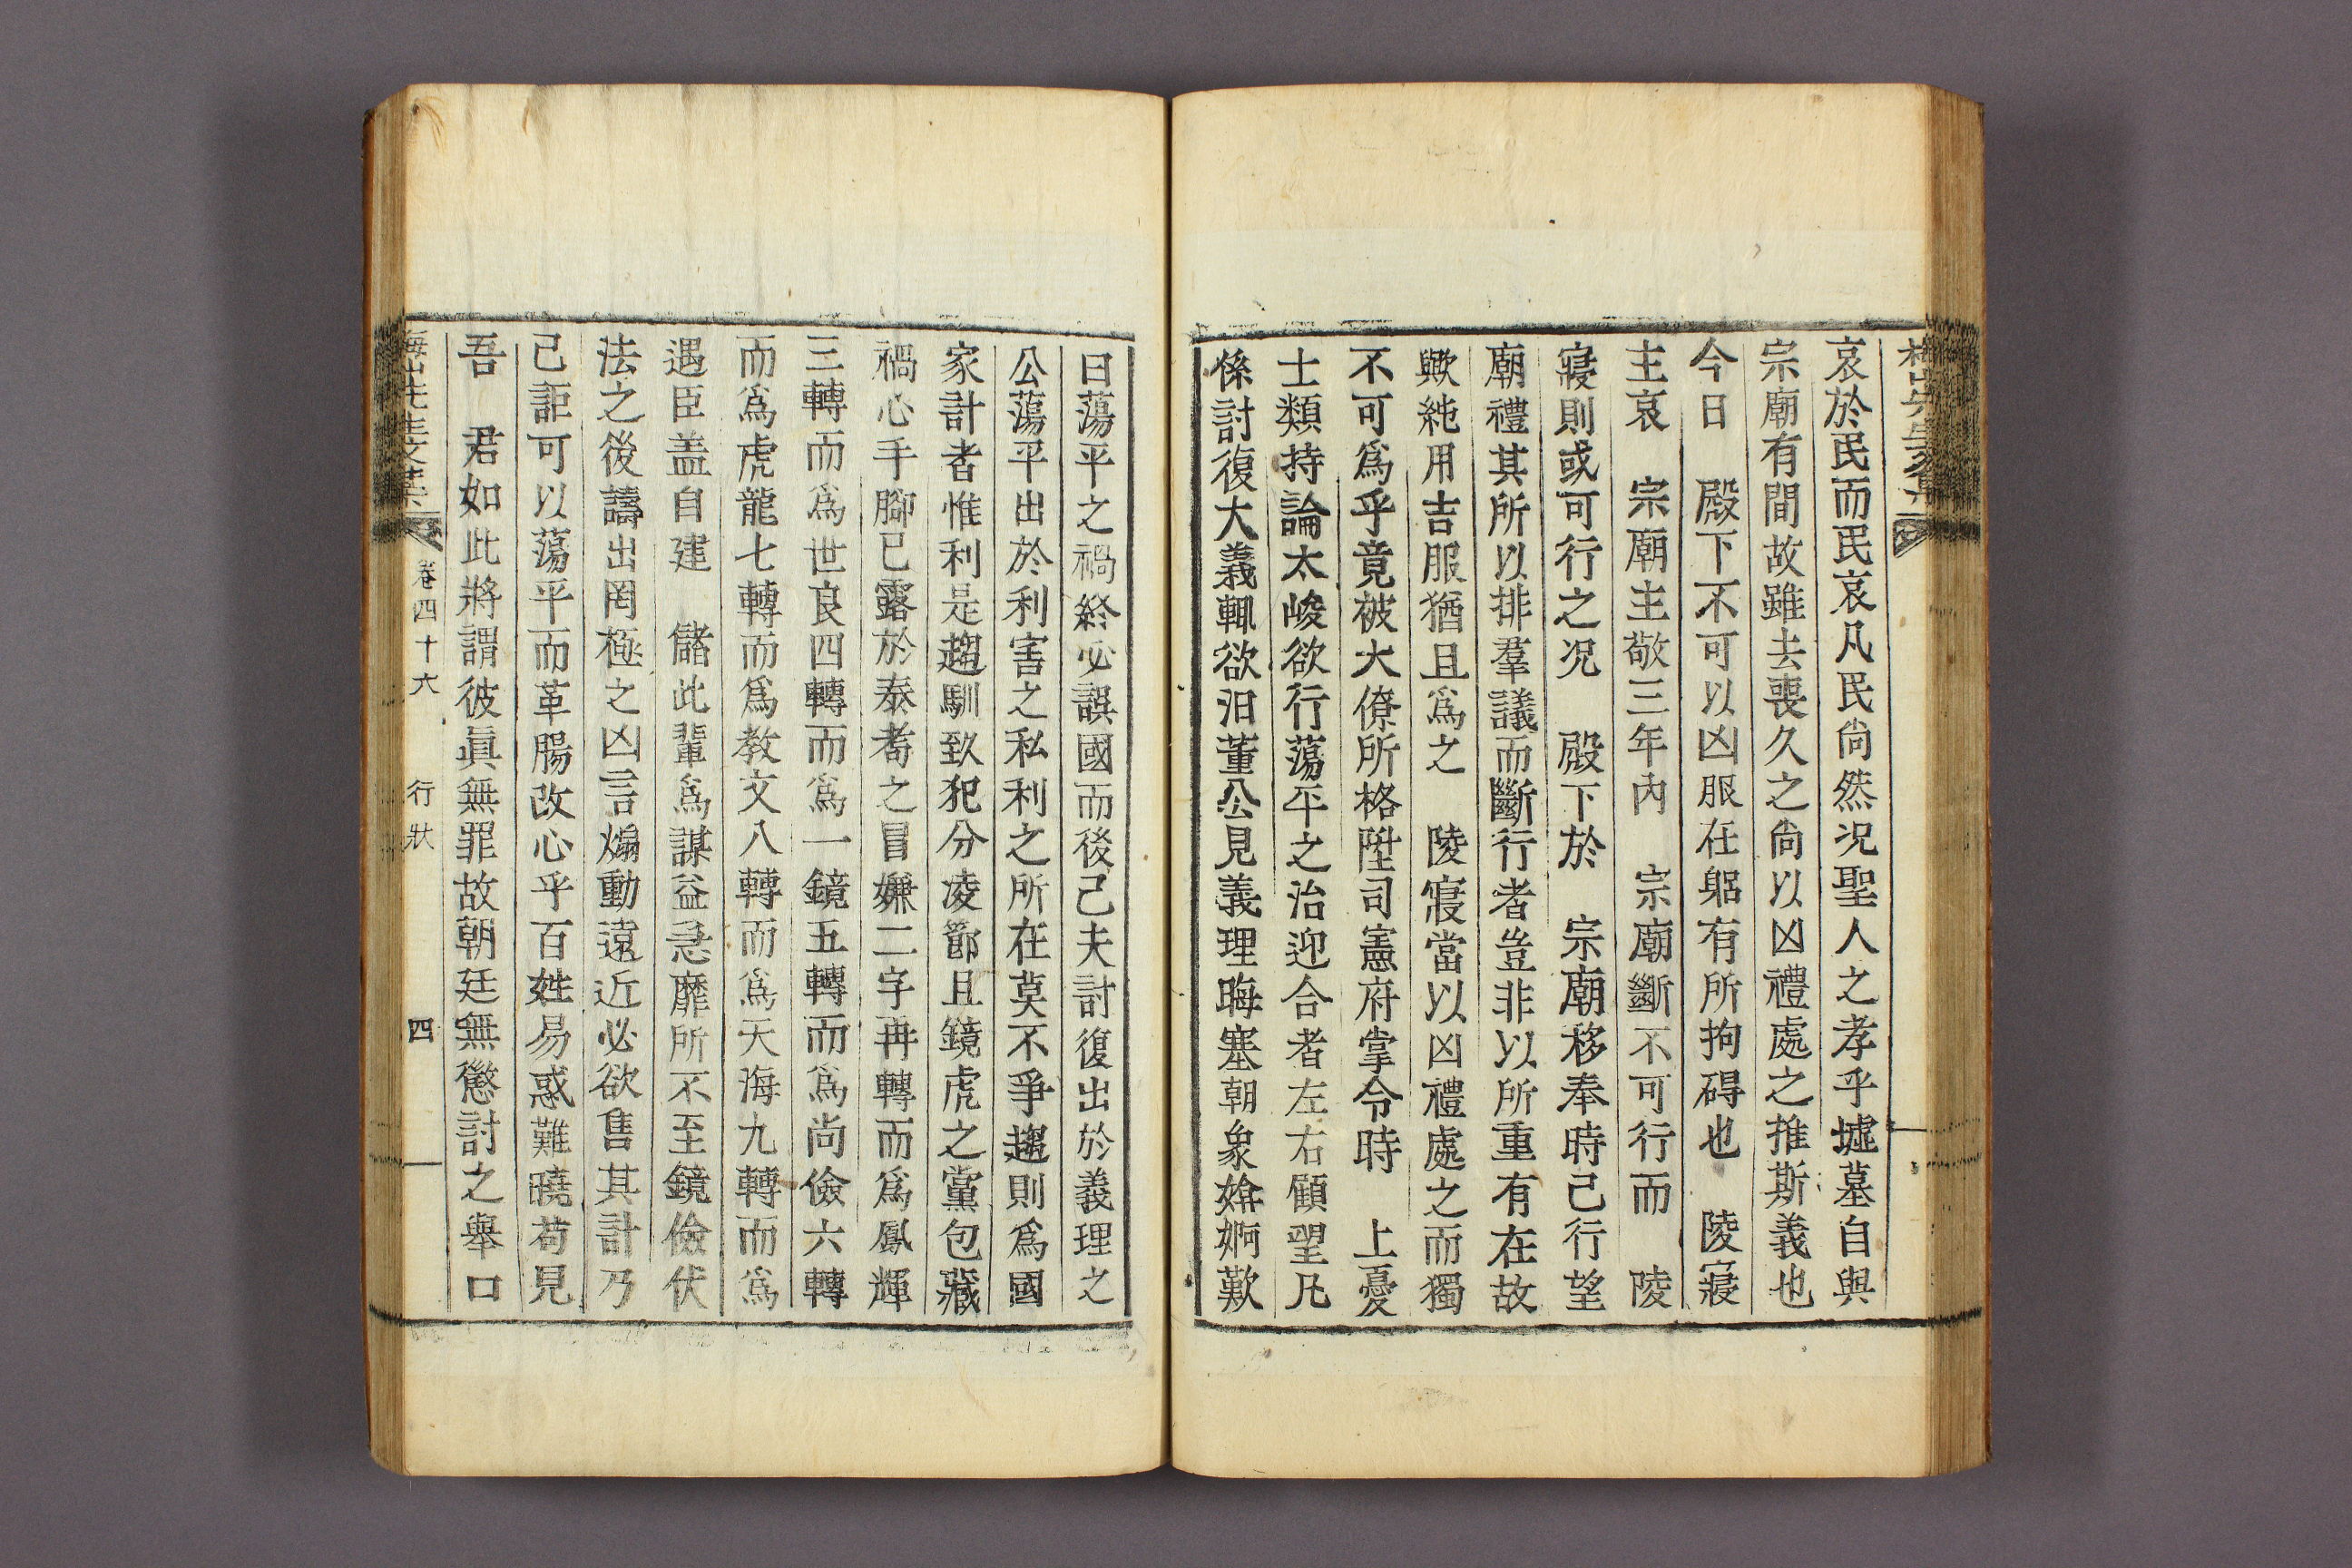 哀於民而民哀凡民尙然况聖人之孝乎墟墓自與
宗廟有間故雖去喪久之尙以凶禮處之推斯義也
今日 殿下不可以凶服在躬有所拘碍也 陵寢
主哀 宗廟主敬三年內 宗廟斷不可行而 陵
寢則或可行之况 殿下於 宗廟移奉時已行望
廟禮其所以排羣議而斷行者豈非以所重有在故
歟純用吉服猶且爲之 陵寢當以凶禮處之而獨
不可爲乎竟被大僚所格陞司憲府掌令時 上憂
士類持論太峻欲行蕩平之治迎合者左右顧望凡
係討復大義輒欲汩董公見義理晦塞朝象媕婀歎
曰蕩平之禍終必誤國而後已夫討復出於義理之
公蕩平出於利害之私利之所在莫不爭趨則爲國
家計者惟利是趨馴致犯分凌節且鏡虎之黨包藏
禍心手腳已露於泰耈之冒嫌二字再轉而爲鳳輝
三轉而爲世良四轉而爲一鏡五轉而爲尙儉六轉
而爲虎龍七轉而爲教文八轉而爲天海九轉而爲
遇臣盖自建 儲此輩爲謀益急靡所不至鏡儉伏
法之後譸出罔極之凶言煽動遠近必欲售其計乃
已詎可以蕩平而革腸改心乎百姓易惑難曉苟見
吾 君如此將謂彼眞無罪故朝廷無懲討之舉口
梅山先生文集 卷四十六 行狀 四